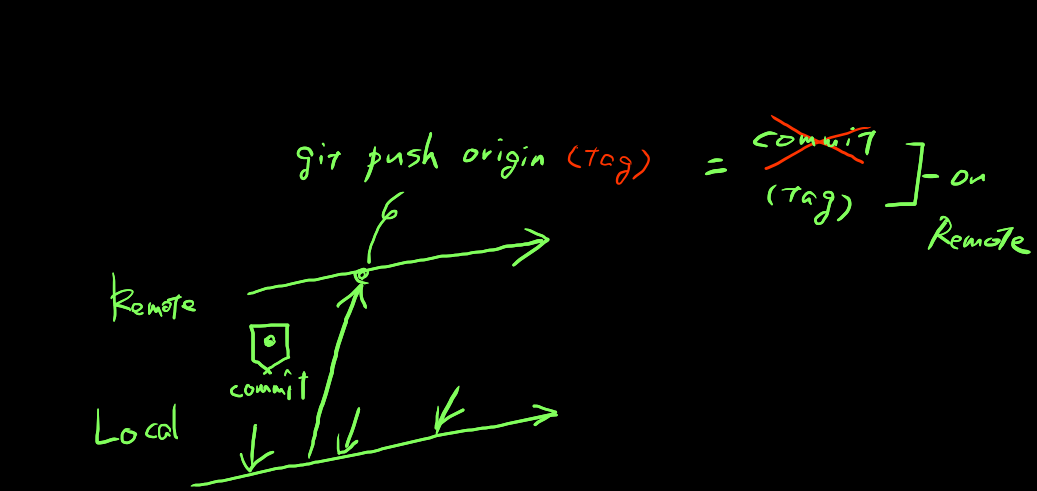 git push origin (tag) = commit
(tag)
on
Remote
Remote
commit
Local